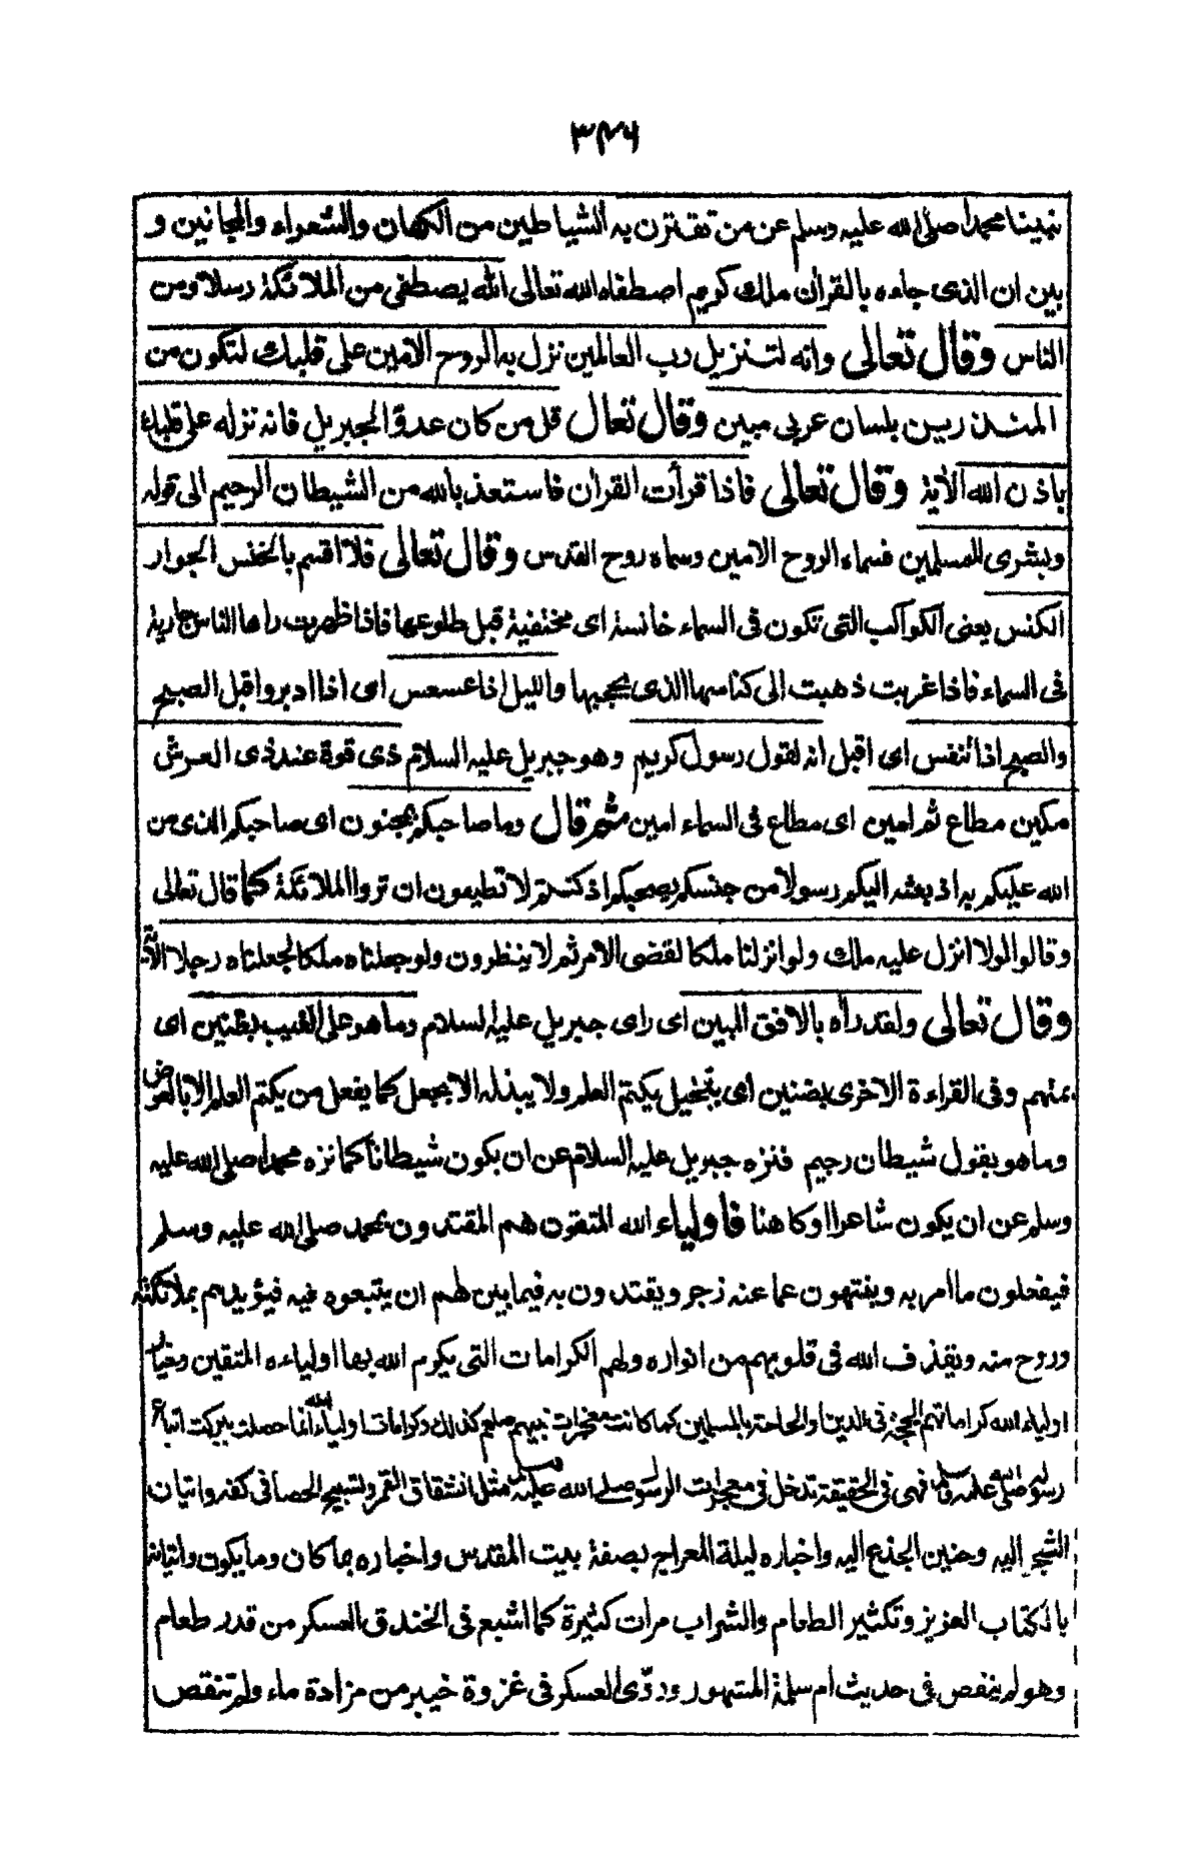 ٣٤٦
نبينا محمدا صلى الله عليه وسلم عن من تقترن به الشياطين من الكهان والشعراء والمجانين و
بين ان الذى جاءه بالقرأن ملك كريم اصطفاه الله تعالى الله يصطفى من الملائكة رسلا ومن
الناس وقال تعالى وانه لتنزيل رب العالمين نزل به الروح الامين على قلبك لتكون من
المنذرين بلسان عربى مبين وقال تعال قل من كان عدوّا لجبريل فانه نزله على قلبك
باذن الله الأية وقال تعالى فاذا قرأت القرأن فاستعذ بالله من الشيطان الرجيم الى قوله
وبشرى للمسلمين فسماه الروح الامين وسماه روح القدس وقال تعالى فلا اقسم بالخنس الجوار
الكنس يعنى الكواكب التى تكون فى السماء خانسة اى مختفية قبل طلوعها فاذا ظهرت راها الناس جارية
فى السماء فاذا غربت ذهبت الى كناسها الذى يحجبها والليل اذا عسعس اى اذا ادبر واقبل الصبح
والصبح اذا تنفس اى اقبل انه لقول رسول كريم وهو جبريل عليه السلام ذى قوة عند ذى العرش
مكين مطاع ثم امين اى مطاع فى السماء امين ثم قال وما صاحبكم بمجنون اى صاحبكم الذى من
الله عليكم به اذ بعثه اليكم رسولا من جنسكم يصحبكم اذ كنتم لا تطيقون ان تروا الملائكة كما قال تعالى
وقالوا لولا انزل عليه ملك ولو انزلنا ملكا لقضى الامر ثم لا ينظرون ولو جعلناه ملكا لجعلناه رجلا الأية
وقال تعالى ولقد رأه بالافق المبين اى راى جبريل عليه السلام وما هو على الغيب بظنين اى
بمتهم وفى القراءة الاخرى بضنين اى بتخيل يكتم العلم ولا يبذله الا بجعل كما يفعل من يكتم العلم الا بالعوض
وما هو بقول شيطان رجيم فنزه جبريل عليه السلام عن ان يكون شيطانا كما نزه محمدا صلى الله عليه
وسلم عن ان يكون شاعرا او كاهنا فاولياء الله المتقون هم المقتدون بمحمد صلى الله عليه وسلم
فيفعلون ما امر به وينتهون عما عنه زجر ويقتدون به فيما بين لهم ان يتبعوه فيه فيؤيدهم بملائكته
وروح منه ويقذف الله فى قلوبهم من انواره ولهم الكرامات التى يكرم الله بها اولياءه المتقين وخيار
اولياء الله كراماتهم لحجة فى الدين او لحاجة بالمسلمين كما كانت معجزات نبيهم صلعم كذلك وكرامات اولياء الله انما حصلت ببركت اتباع
رسوله صلى الله عليه وسلم فهى فى الحقيقة تدخل فى معجزات الرسول صلى الله عليه وسلم مثل انشقاق القمر وتسبيح الحصا فى كفه واتيان
الشجر اليه وحنين الجذع اليه واخباره ليلة المعراج بصفة بيت المقدس واخباره بما كان وما يكون واتيانه
بالكتاب العزيز وتكثير الطعام والشراب مرات كثيرة كما اشبع فى الخندق العسكر من قدر طعام
وهو لم ينقص فى حديث ام سلمة المشهور وروّى العسكر فى غزوة خيبر من مزادة ماء ولم تنقص